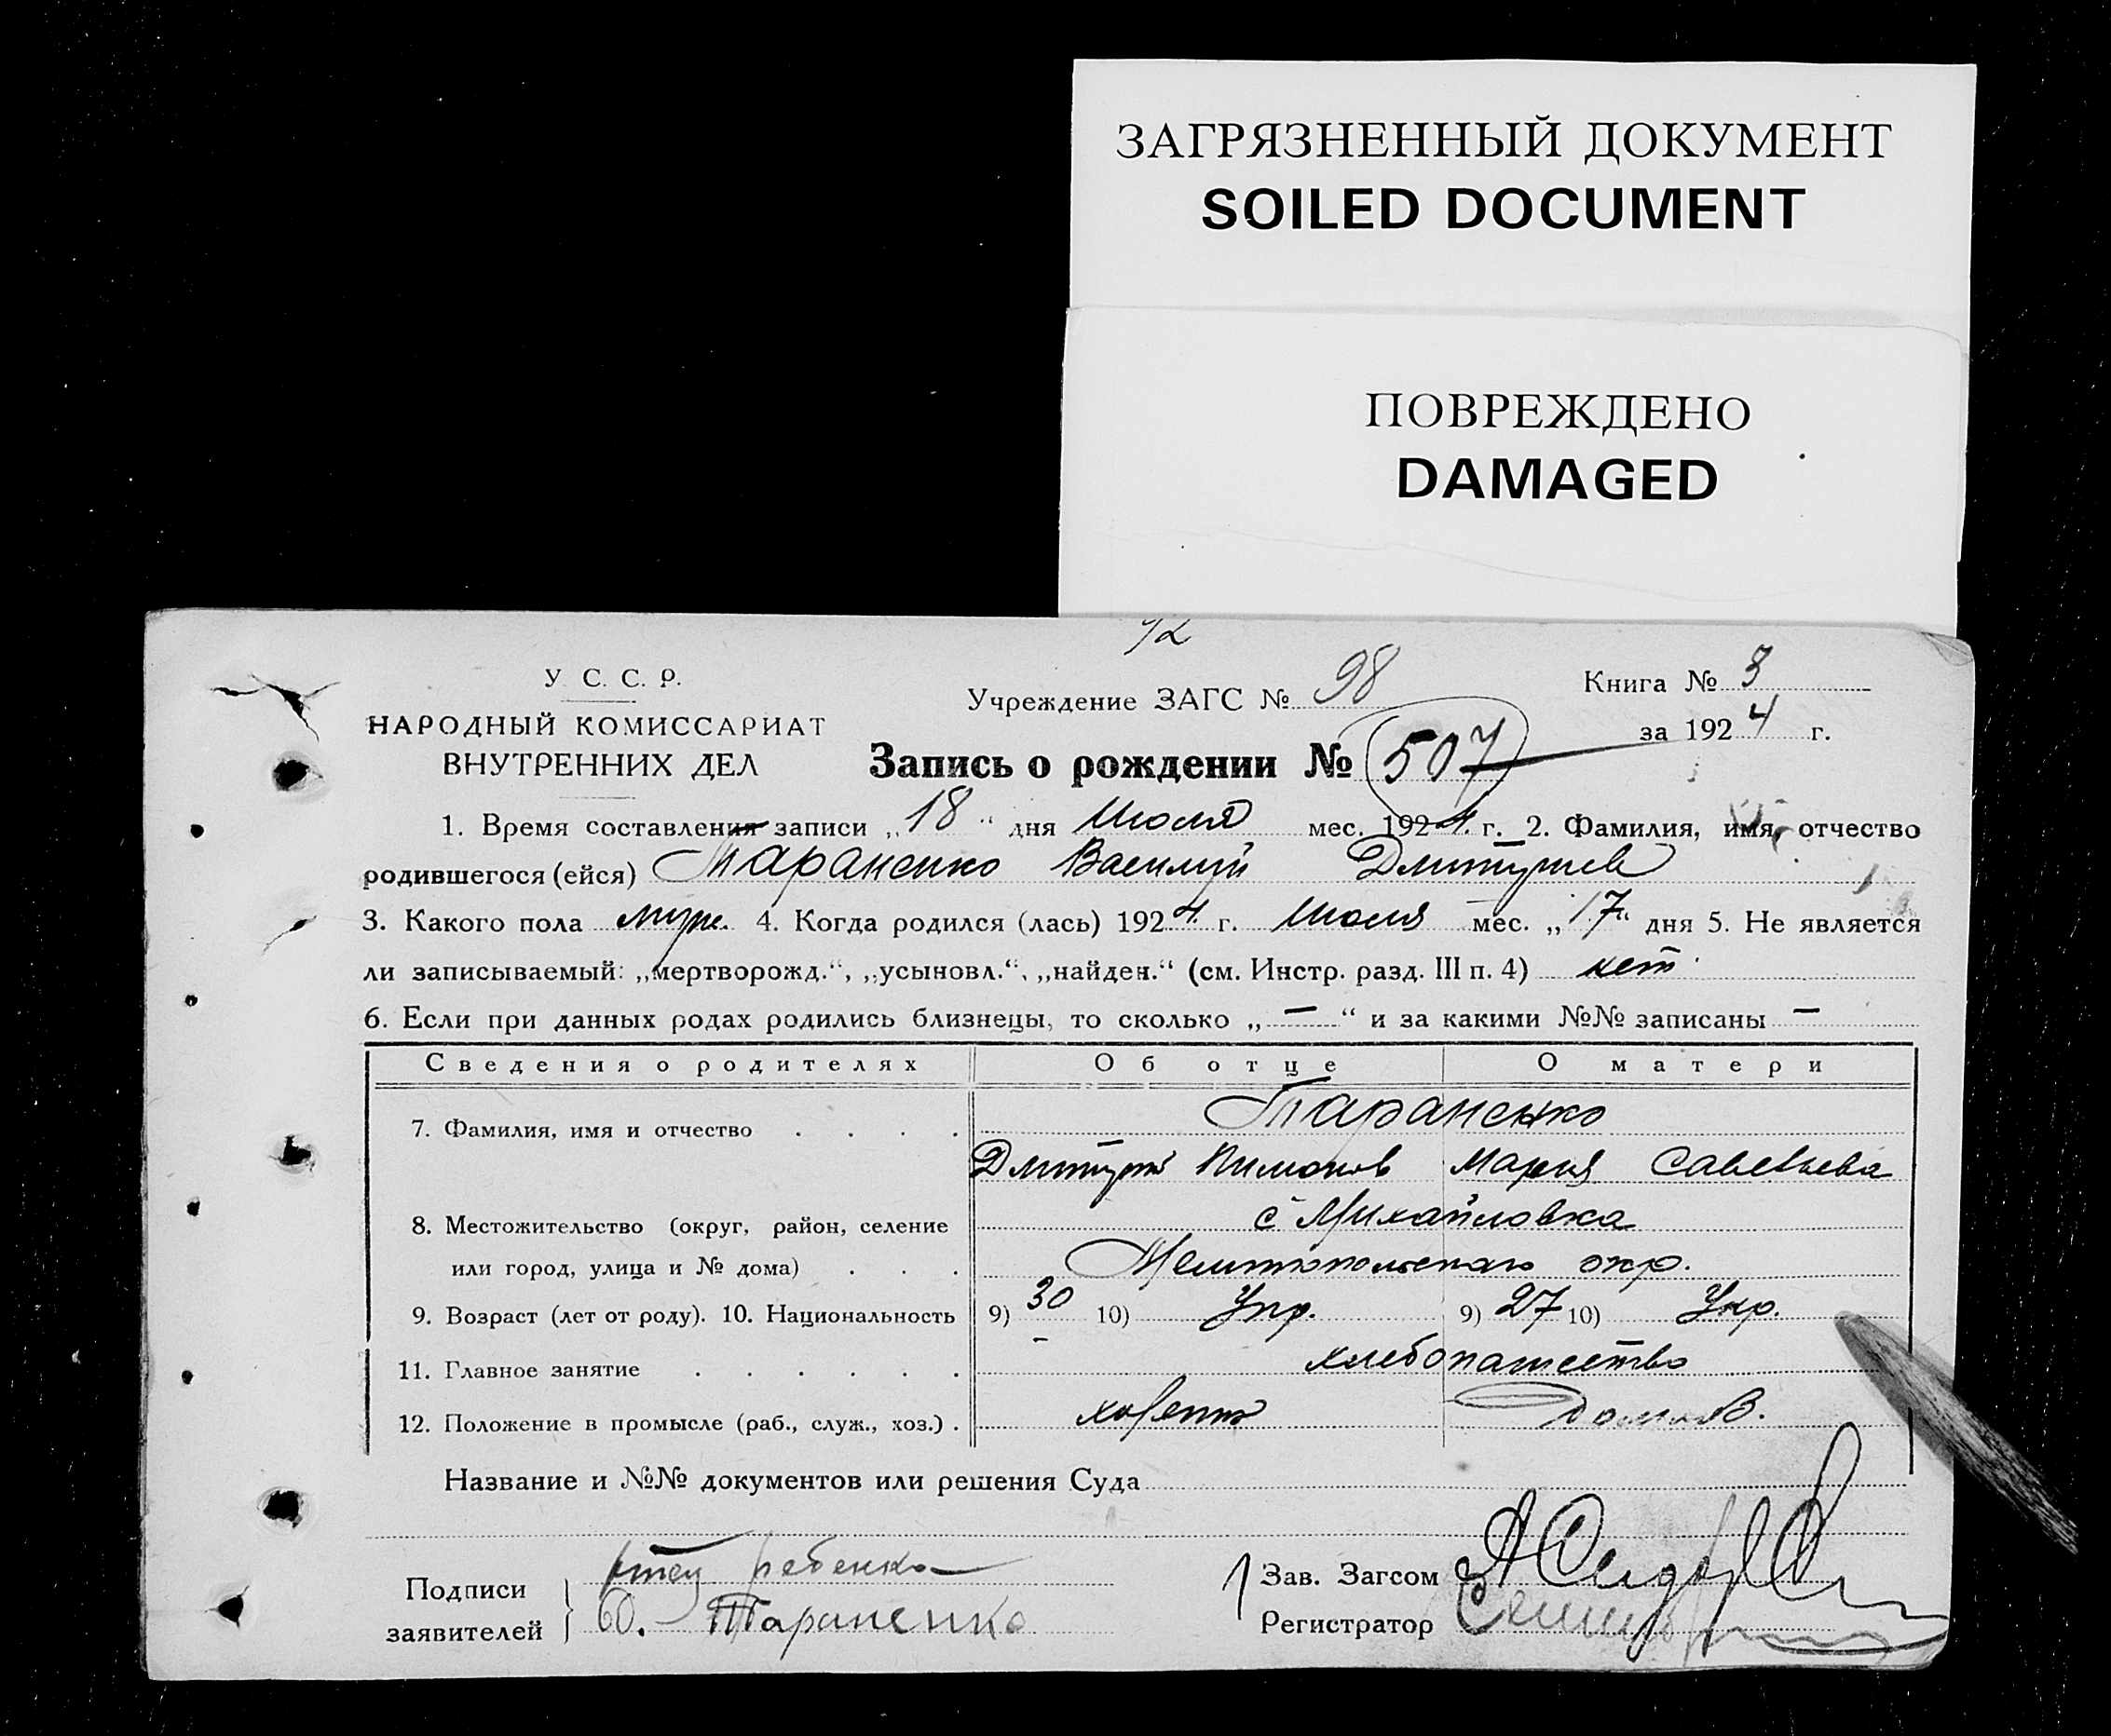 ЗАГРЯЗНЕННЫЙ ДОКУМЕНТ
SOILED DOCUMENT
ПОВРЕЖДЕНО
DAMAGED
У. С. С. Р.
НАРОДНЫЙ КОМИССАРИАТ
ВНУТРЕННИХ ДЕЛ
Учреждение ЗАГС № 98
Книга № 3
за 1924 г.
Запись о рождении № 507
1. Время составления записи „18“ дня Июля мес. 1924 г. 2. Фамилия, имя, отчество
родившегося (ейся) Тараненко Василий Дмитриев
3. Какого пола муж. 4. Когда родился (лась) 1924 г. Июля мес. „17“ дня 5. Не является
ли записываемый: „мертворожд.“, „усыновл.“, „найден.“ (см. Инстр. разд. III п. 4) нет
6. Если при данных родах родились близнецы, то сколько „—“ и за какими №№ записаны —
Сведения о родителях Об отце О матери
7. Фамилия, имя и отчество . . . . Тараненко
Дмитрий Пимонов Мария Савельева
8. Местожительство (округ, район, селение с Михайловка
или город, улица и № дома) . . . Мелитопольского окр.
9. Возраст (лет от роду). 10. Национальность 9) 30 10) Укр. 9) 27 10) Укр.
11. Главное занятие . . . . . . хлебопашество
12. Положение в промысле (раб., служ., хоз.) .
Название и №№ документов или решения Суда
Подписи
заявителей
отец ребенка
Тараненко
Зав. Загсом
Регистратор